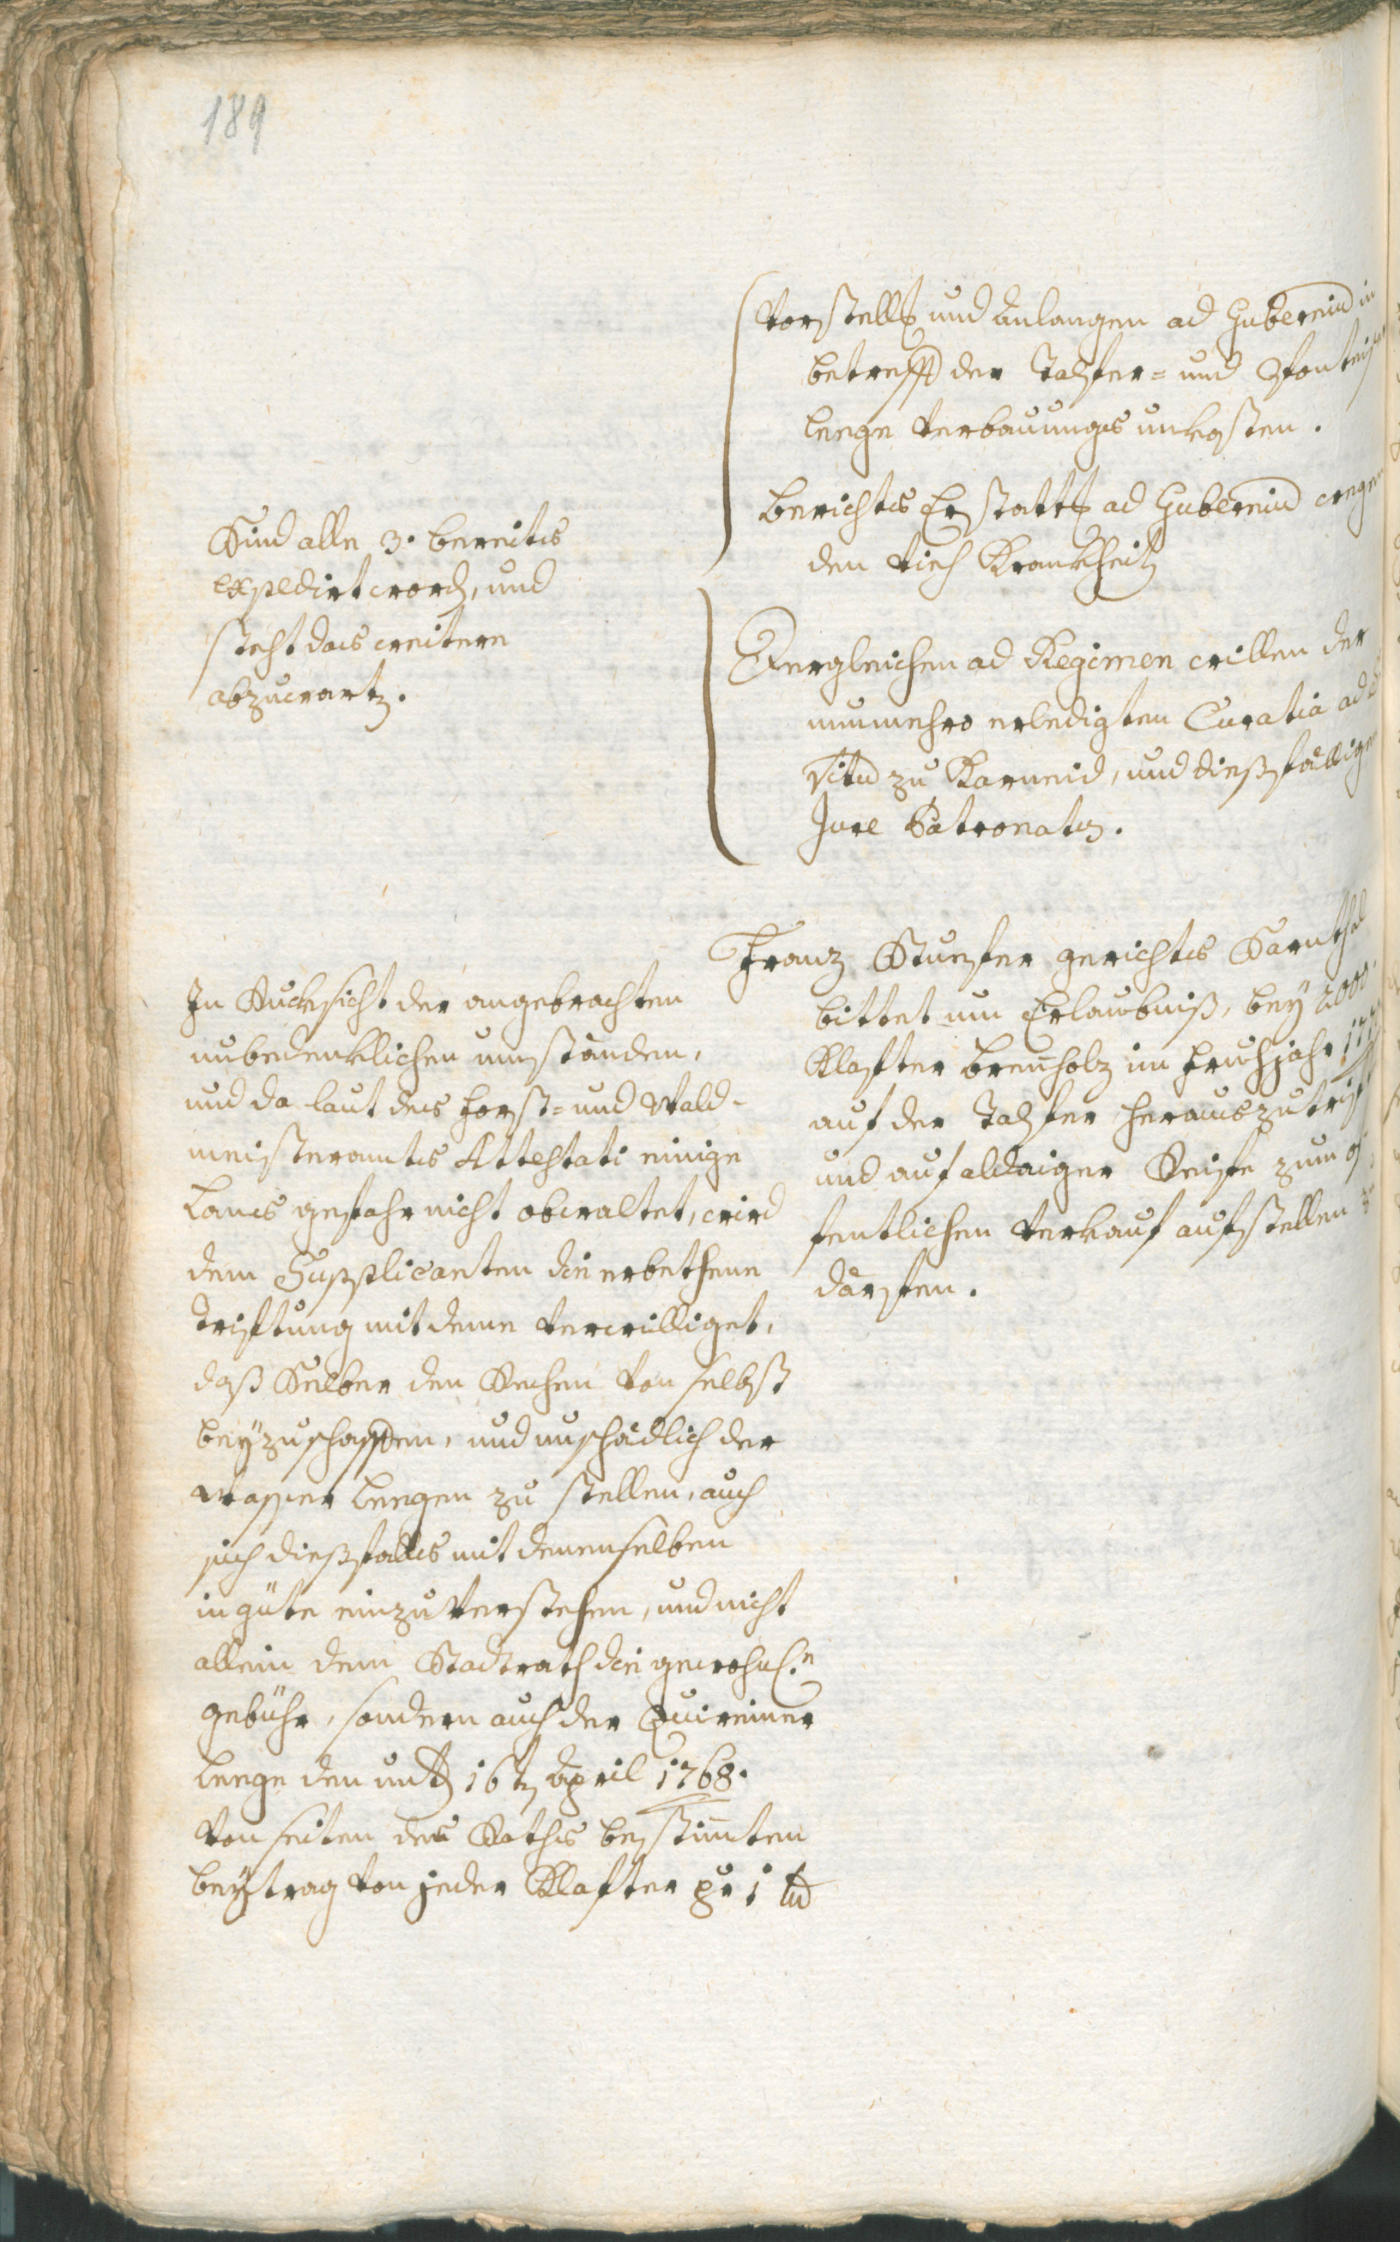 189
Vorstellg und Anlangen ad Guberniũ in
betreff der Talfer= und
leege Verbauungs unkosten.
Berichts Erstattg ad Guberniũ wegen
den Vich Krankheitz
Sind alle 3. bereits
expedirt word, und
steht das weitere
abzuwartz.
Dergleichen ad Regimen willen der
nunmehro erledigten Curatia ad S
Vitũ zu Karneid, und dießfälligen
Jure Patronatus.
Franz Stuefer gerichts Sarnthal
bittet um Erlaubniß, bey 2000
Klafter brennholz im Fruhjahr
auf der Talfer herauszutrif
und auf aldaiger Reife zum of
fentlichen Verkauf aufstellen zu
därfen.
In Rucksicht der angebrachten
unbedenklichen umständen,
und da laut des Forst= und Wald=
meisteramts Attestati einige
Lands gefahr nicht obwaltet, wird
dem Supplicanten die erbethene
Triftung mit deme verwilliget,
daß Selber den Rechen von selbst
beyzuschaffen, und unschädlich der
Wasser Leegen zu stellen, auch
sich dießfalls mit denenselben
in güte einzuverstehen, und nicht
allein dem Stadtrath die gewohnl.e
gebühr, sondern auch der Quireiner
Leege den untz 16tz April 1768.
von seiten des Raths bestimten
beytrag von jeder Klafter pr 1 xr